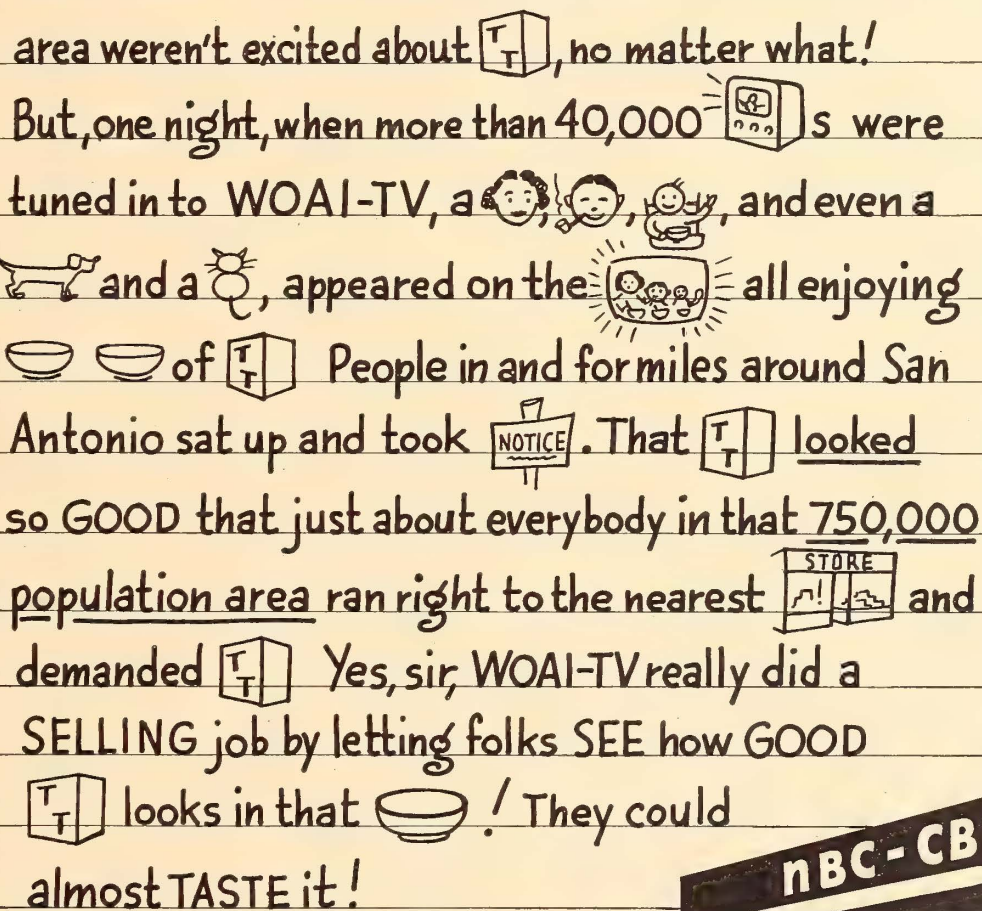 area weren't excited about T T, no matter what!
But, one night, when more than 40,000 s were
tuned in to WOAI-TV, a , , , and even a
and a , appeared on the all enjoying
of T T People in and for miles around San
Antonio sat up and took NOTICE. That T T looked
so GOOD that just about everybody in that 750,000
population area ran right to the nearest STORE and
demanded T T Yes, sir, WOAI-TV really did a
SELLING job by letting folks SEE how GOOD
T T looks in that ! They could
almost TASTE it!
nBC - CB